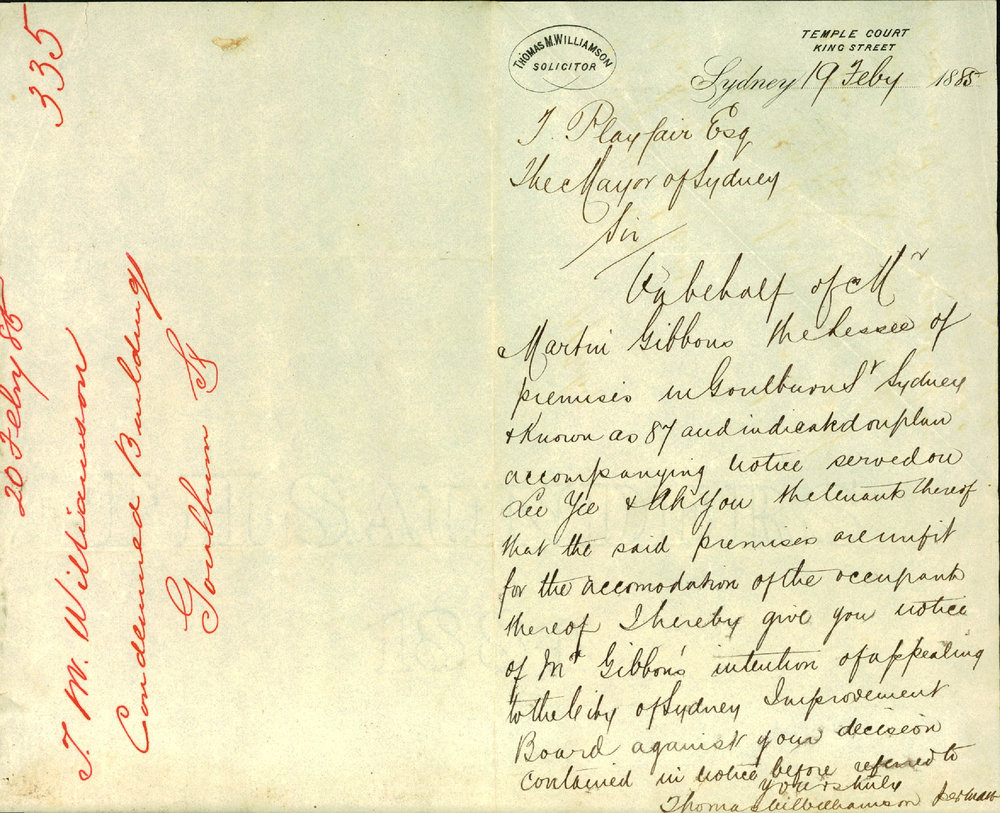 335
20 Febry 85
T. M. Williamson
Condemned Buildings
Goulburn St
THOMAS M. WILLIAMSON
SOLICITOR
TEMPLE COURT
KING STREET
Sydney 19 Feby 1885
T. Playfair Esq
The Mayor of Sydney
Sir
On behalf of Mr
Martin Gibbons the Lessee of
premises in Goulburn St Sydney
& Known as 87 and indicated on plan
accompanying notice served on
Lee Yee & Ah You the tenants thereof
that the said premises are unfit
for the accomodation of the occupants
thereof I hereby give you notice
of Mr Gibbon's intention of appealing
to the City of Sydney Improvement
Board against your decision
contained in notice before referred to
yours truly
Thomas M Williamson